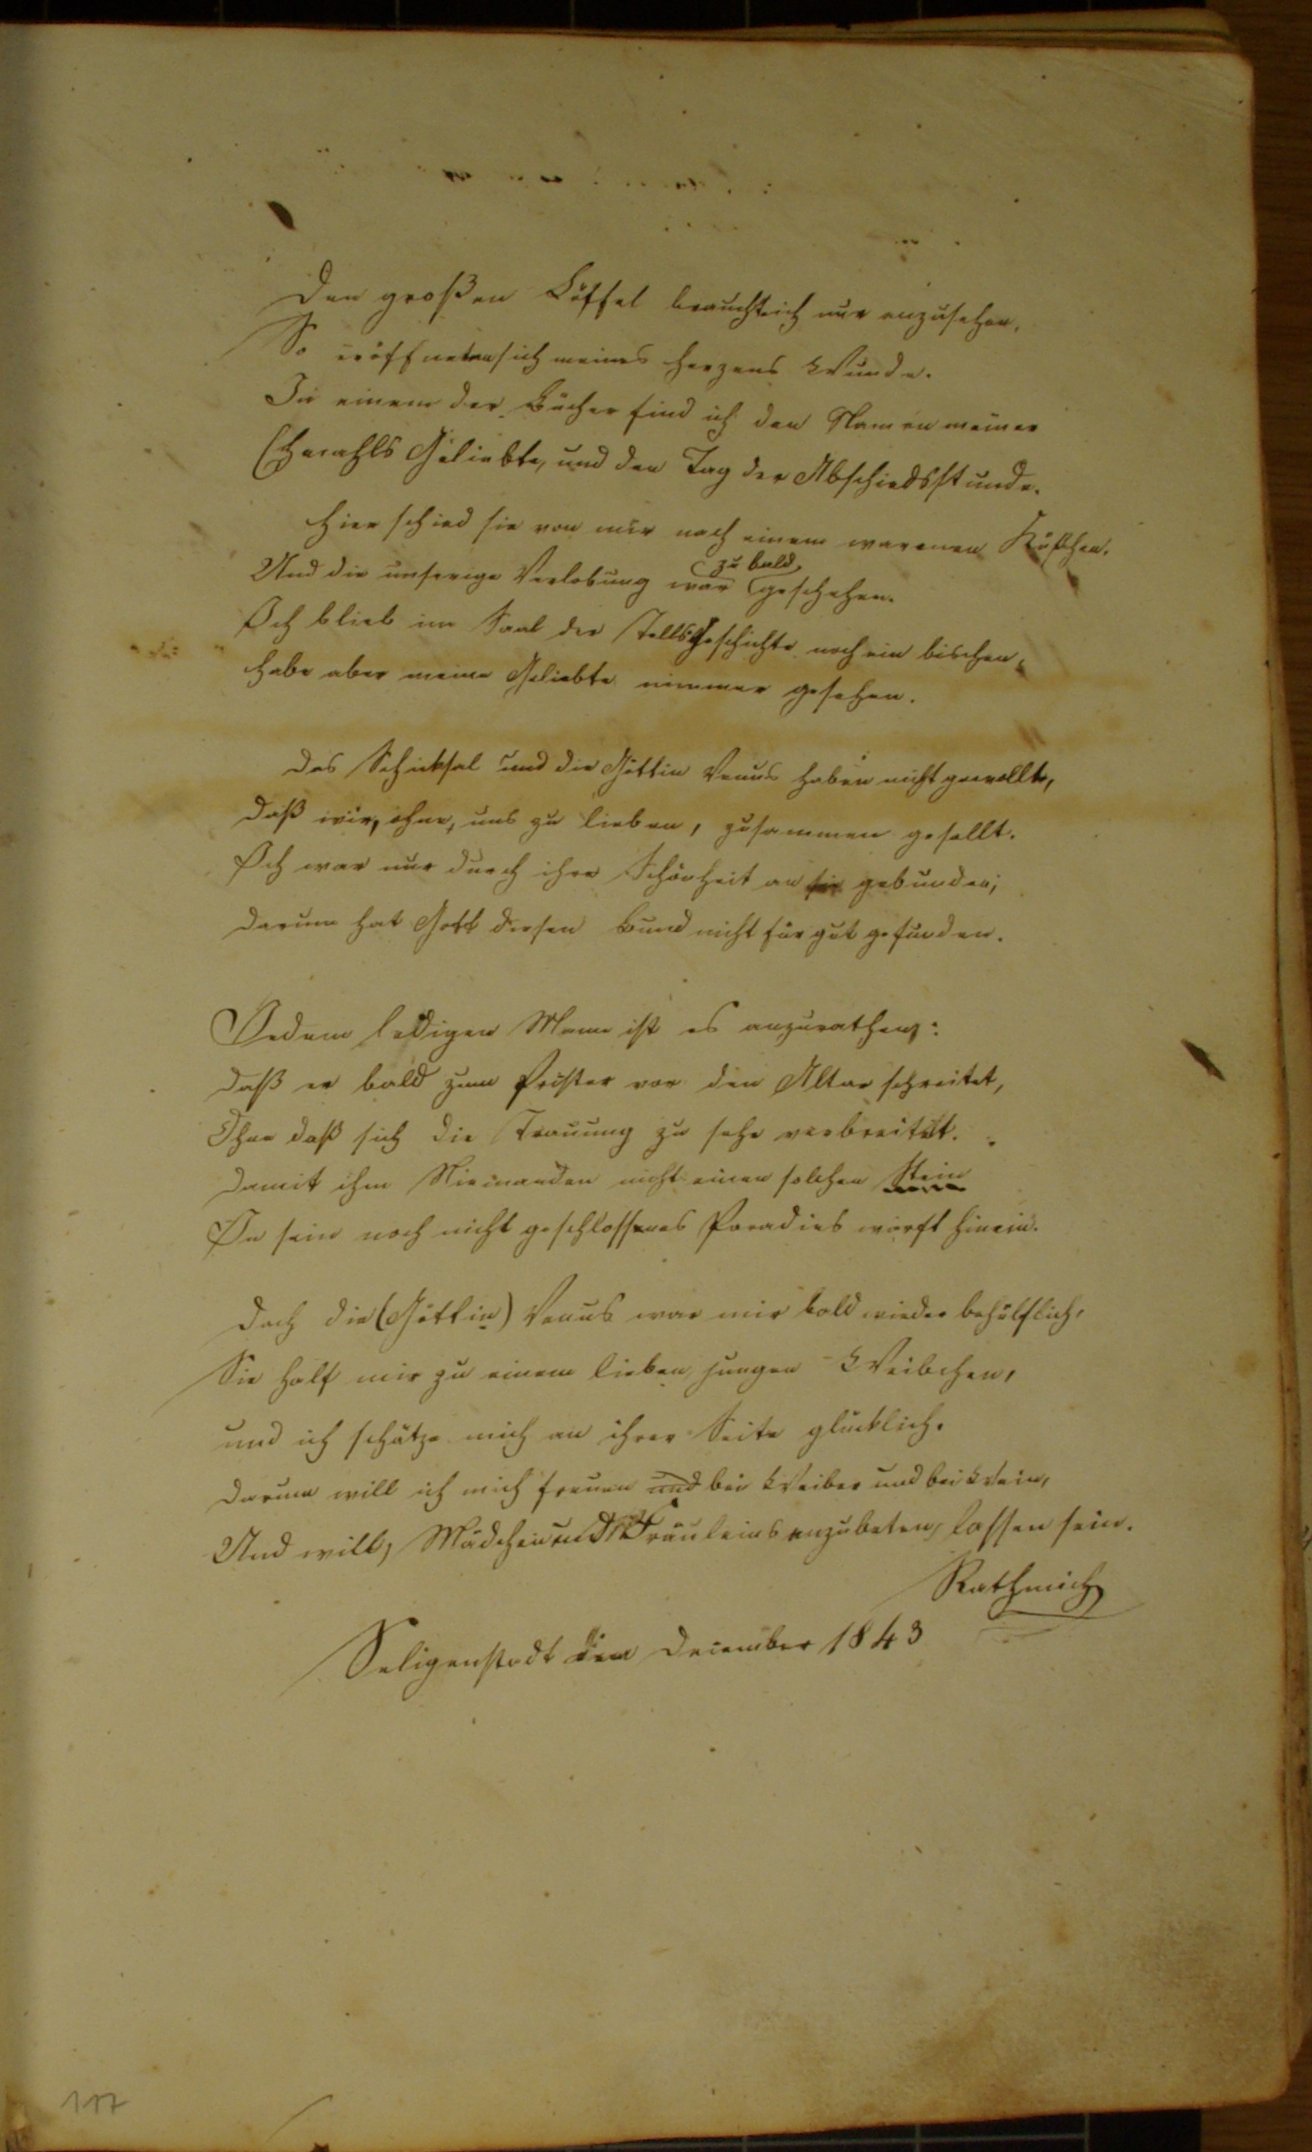 Den großen Löffel brauchte ich nur anzusehen,
So eröffneten sich meines Herzens Wunde.
In einem der Bücher find ich den Namen meiner
Geliebte, und den Tag der Abschiedsstunde.
Hier schied sie von mir nach einem warmen Küßchen.
zu bald
Und die unserige Verlobung war geschehen.
Ich blieb im Saal der Tells Geschichte noch ein bischen,
Habe aber meine Geliebte nimmer gesehen.
Das Schicksal und die Göttin Venus haben nicht gewollt,
Daß wir, ohne, uns zu lieben, zusammen gesellt.
Ich war nur durch ihre Schönheit an sie gebunden;
Darum hat Gott diesen Bund nicht für gut gefunden.
Jedem ledigen Mann ist es anzurathen:
Daß er bald zum Prister vor den Altar schreitet,
Ohne daß sich die Trauung zu sehr verbreitet.
Damit ihm Niemanden nicht einen solchen Stein
In sein noch nicht geschlossenes Paradies wirft hinein.
Doch die (Göttin) Venus war mir bald wieder behülflich,
Sie half mir zu einem lieben jungen Weibchen,
und ich schätze mich an ihrer Seite glücklich.
Darum will ich mich freuen und bei Weiber und bei Wein,
Und will, Mädchen und Fräuleins anzubeten, lassen sein.
Rathmich
Seligenstadt den December 1843
117